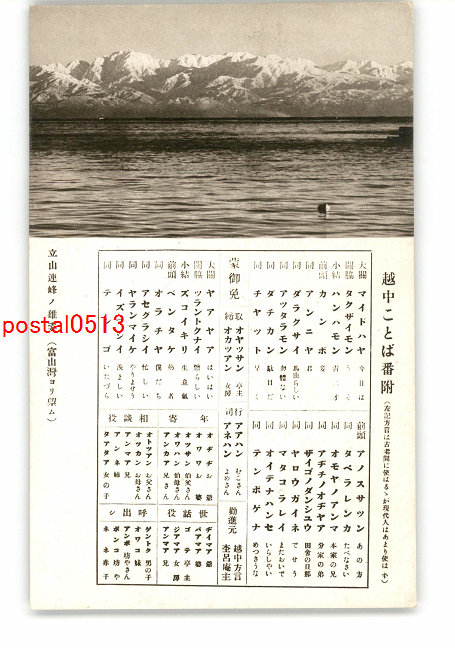 越中ことば番附
(左記方言は古老間に使はるゝが現代人はあまり使はず)
大關 マイドハヤ 今日は
關脇 タクザイモン
小結 ハンハモン
前頭 カンボ
同 アンニャ 君兄
同 ダラクサイ 馬鹿らしい
同 アツタラモン 勿體ない
同 ダチカン 駄目だ
同 チヤット 早く
前頭 アノスサツン あの方
同 タベラレンカ たべなさい
同 オモヤノアンマ 本家の兄
同 アヂチノオヂヤア 分家の弟
同 ザイゴノダンシュウ 田舎の旦那
同 ヤロウガイネ てせう
同 マタコラレイ またおいで
同 オイデナハンセ いらしやい
同 テンポゲナ めつさうな
蒙御免
取締 オヤッサン 亭主
オカッツアン 女房
行司 アアハン むこさん
アネハン よめさん
勸進元 越中方言
壺呂庵主
大關 ヤアヤア はいはい
關脇 ツラントクナイ 憎らしい
小結 ズコイキリ 生意氣
前頭 ベンタケ 勝者
同 オラチヤ 僕だち
同 アセクラシイ 忙しい
同 ヤランマイケ やりませう
同 イズシイ 羨ましい
同 テンゴ いたづら
年寄
オヂヂ お爺
オワワ お婆
オツサン お伯父さん
オワハン お伯母さん
アンカア 兄
相談役
オトツアン お父さん
オッカサン お母さん
アンマア 兄
アンネ 姉
タアタア 女の子
世話役
ヂイマア 爺
バアマア 婆
ゴテ 亭主
ジアマア 女房
アンマア 兄
呼出シ
ゲントク 男の子
オワ 妹
アンボ 坊さん
ボンコ 坊や
ネネ 赤子
立山連峰ノ雄姿(富山灣ヨリ望ム)
postal0513